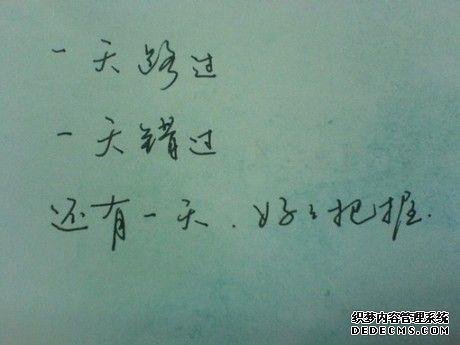 一天路过
一天错过
还有一天.好々把握.
织梦内容管理系统
DEDECMS.COM